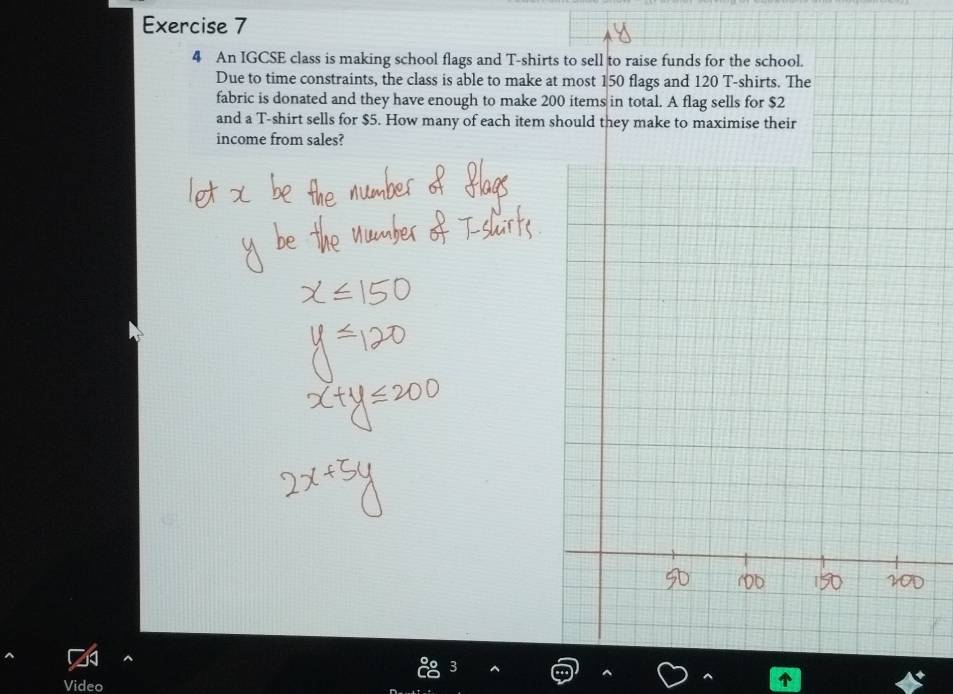 Exercise 7
y
4 An IGCSE class is making school flags and T-shirts to sell to raise funds for the school.
Due to time constraints, the class is able to make at most 150 flags and 120 T-shirts. The
fabric is donated and they have enough to make 200 items in total. A flag sells for $2
and a T-shirt sells for $5. How many of each item should they make to maximise their
income from sales?
let x be the number of flags
y be the number of T-shirts.
x ≤ 150
y ≤ 120
x+y ≤ 200
2x+5y
50 100 150 200
3
Video